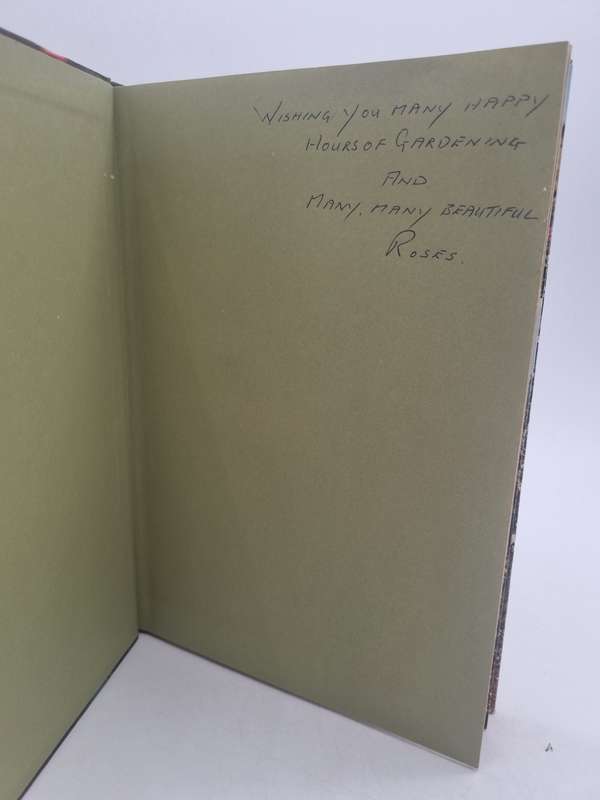 WISHING YOU MANY HAPPY
HOURS OF GARDENING
AND
MANY, MANY BEAUTIFUL
ROSES.